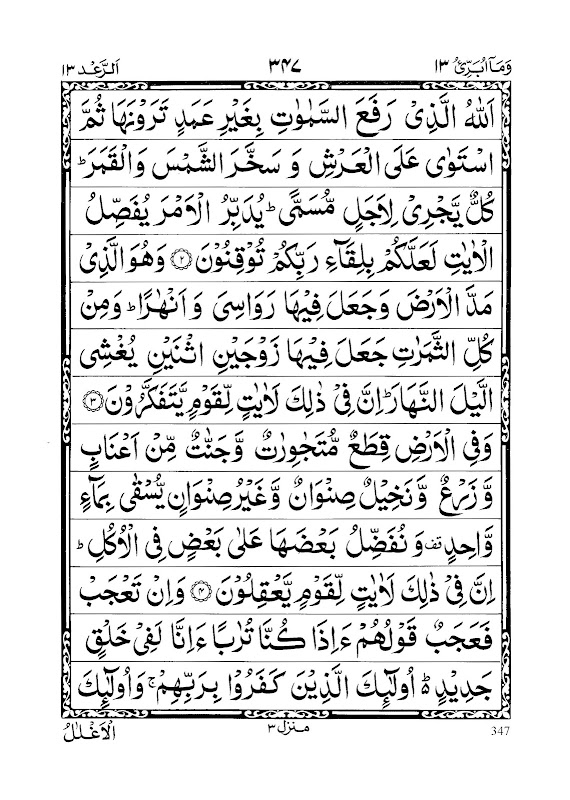 وَمَآ اُبَرِّئُ ١٣
٣٤٧
اَلرَّعْد ١٣
اَللّٰهُ الَّذِیْ رَفَعَ السَّمٰوٰتِ بِغَیْرِ عَمَدٍ تَرَوْنَهَا ثُمَّ
اسْتَوٰی عَلَی الْعَرْشِ وَ سَخَّرَ الشَّمْسَ وَالْقَمَرَ ؕ
كُلٌّ یَّجْرِیْ لِاَجَلٍ مُّسَمًّی ؕ یُدَبِّرُ الْاَمْرَ یُفَصِّلُ
الْاٰیٰتِ لَعَلَّكُمْ بِلِقَآءِ رَبِّكُمْ تُوْقِنُوْنَ ﴿۲﴾ وَهُوَ الَّذِیْ
مَدَّ الْاَرْضَ وَجَعَلَ فِیْهَا رَوَاسِیَ وَ اَنْهٰرًا ؕ وَمِنْ
كُلِّ الثَّمَرٰتِ جَعَلَ فِیْهَا زَوْجَیْنِ اثْنَیْنِ یُغْشِی
الَّیْلَ النَّهَارَ ؕ اِنَّ فِیْ ذٰلِكَ لَاٰیٰتٍ لِّقَوْمٍ یَّتَفَكَّرُوْنَ ﴿۳﴾
وَفِی الْاَرْضِ قِطَعٌ مُّتَجٰوِرٰتٌ وَّجَنّٰتٌ مِّنْ اَعْنَابٍ
وَّ زَرْعٌ وَّ نَخِیْلٌ صِنْوَانٌ وَّ غَیْرُ صِنْوَانٍ یُّسْقٰی بِمَآءٍ
وَّاحِدٍ قف وَ نُفَضِّلُ بَعْضَهَا عَلٰی بَعْضٍ فِی الْاُكُلِ ؕ
اِنَّ فِیْ ذٰلِكَ لَاٰیٰتٍ لِّقَوْمٍ یَّعْقِلُوْنَ ﴿۴﴾ وَاِنْ تَعْجَبْ
فَعَجَبٌ قَوْلُهُمْ ءَاِذَا كُنَّا تُرٰبًا ءَاِنَّا لَفِیْ خَلْقٍ
جَدِیْدٍ ۬ؕ اُولٰٓئِكَ الَّذِیْنَ كَفَرُوْا بِرَبِّهِمْ ۚ وَاُولٰٓئِكَ
347
منزل ٣
الْاَغْلٰلُ